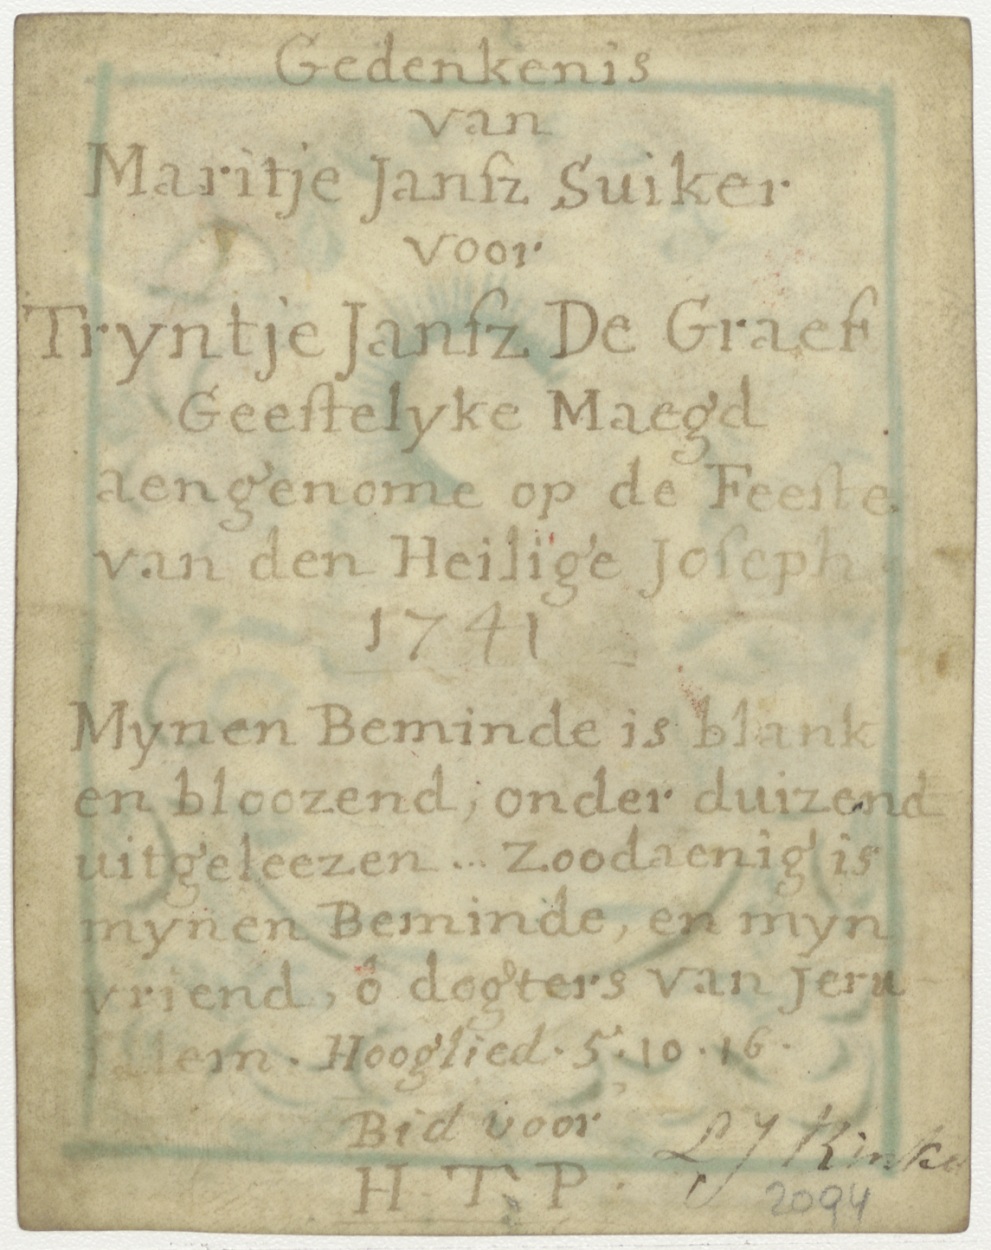 Gedenkenis
van
Maritje Janſz Suiker
voor
Tryntje Janſz De Graef
Geeſtelyke Maegd
aengenome op de Feeſte
van den Heilige Joſeph
1741
Mynen Beminde is blank
en bloozend, onder duizend
uitgeleezen ... Zoodaenig is
mynen Beminde, en myn
vriend, ô dogters van Jeru-
ſalem. Hooglied. 5. 10. 16.
Bid voor
H. T. P.
2094